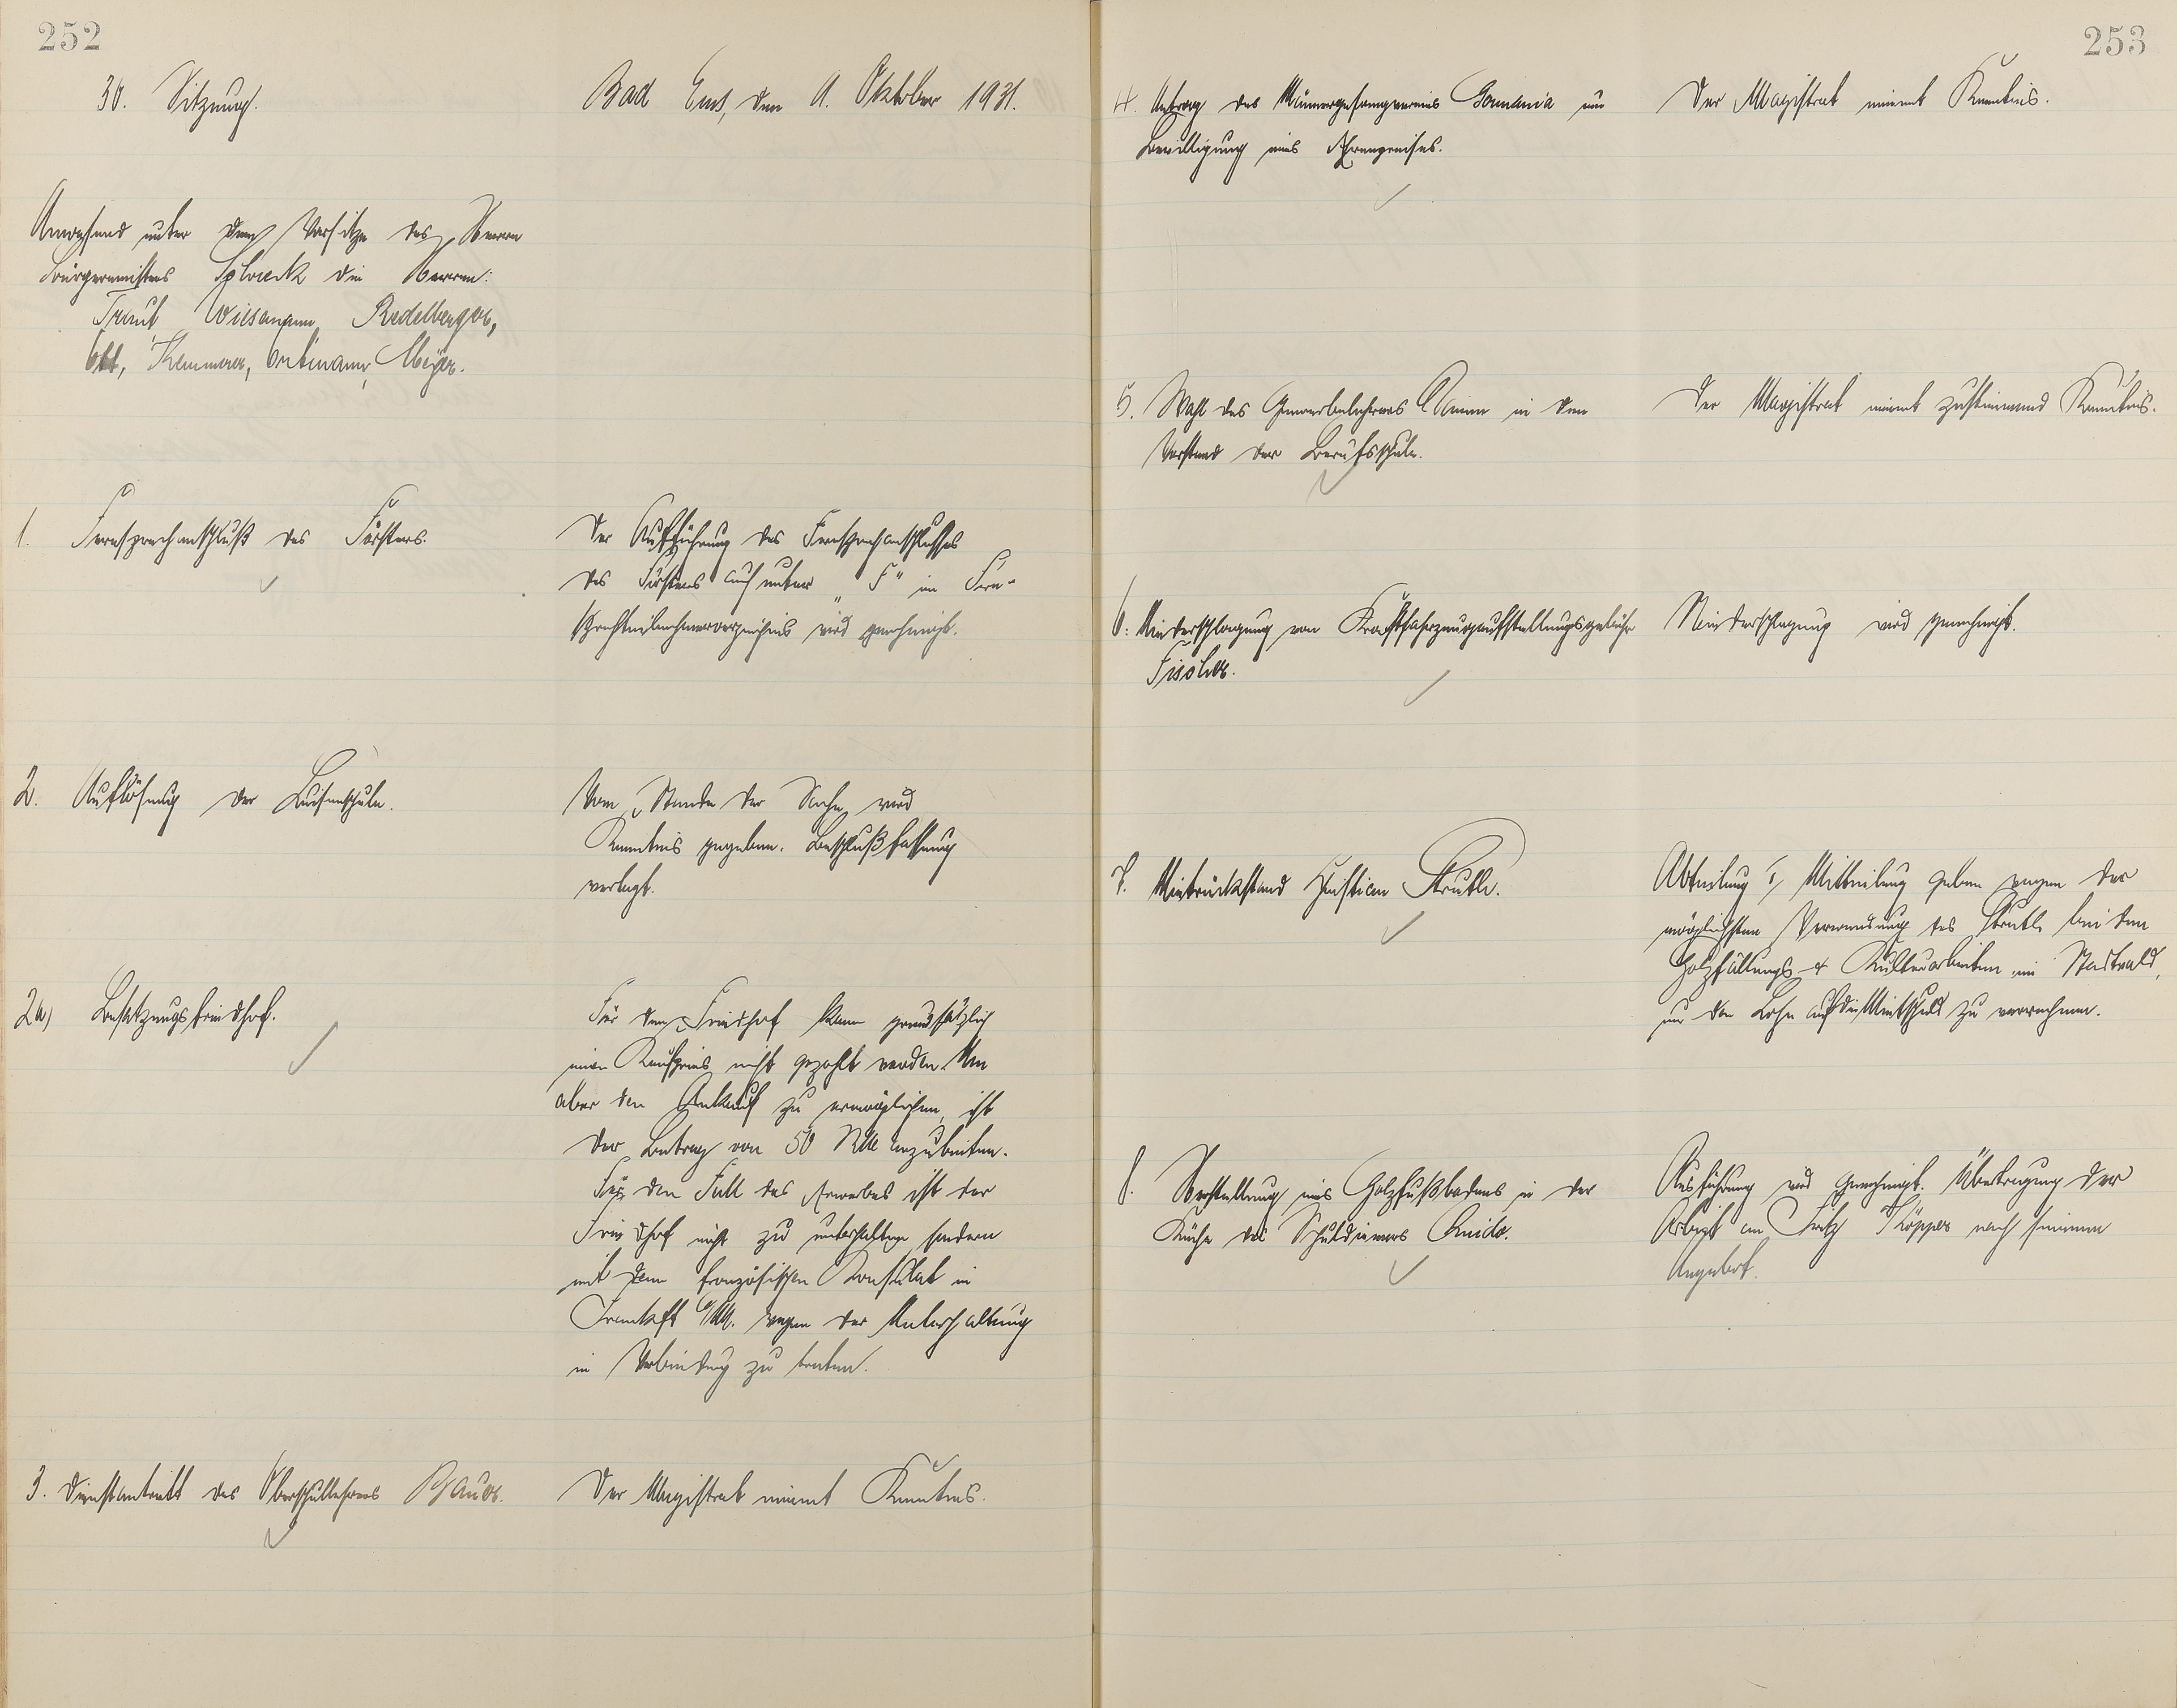 252
30. Sitzung.
Bad Ems, den 1. Oktober 1931.
Anwesend unter dem Vorsitze des Herrn
Bürgermeisters Schreck die Herren:
Traut, Wiesemann, Redelberger,
Ott, Kemmerer, Ortmann, Meyer.
1. Fernsprechanschluß des Försters.
Der Aufführung des Fernsprechanschlusses
des Försters auch unter „F" im Fern-
sprechteilnehmerverzeichnis wird genehmigt.
2. Auflösung der Luisenschule.
Vom Stande der Sache wird
Kenntnis gegeben. Beschlußfassung
vertagt.
2a) Besatzungsfriedhof.
Für den Friedhof kann grundsätzlich
ein Kaufpreis nicht gezahlt werden. Um
aber den Ankauf zu ermöglichen, ist
der Betrag von 50 RM anzubieten.
Für den Fall des Erwerbes ist der
Friedhof nicht zu unterhalten sondern
mit dem französischen Konsulat in
Frankft a/M. wegen der Unterhaltung
in Verbindung zu treten.
3. Dienstantritt des Oberschullehrers Bauer.
Der Magistrat nimmt Kenntnis.
253
4. Antrag des Männergesangvereins Germania um
Bewilligung eines Ehrenpreises.
Der Magistrat nimmt Kenntnis.
5. Wahl des Gewerbelehrers in den
Vorstand der Berufsschule.
Der Magistrat nimmt zustimmend Kenntnis.
6. Niederschlagung von Kraftfahrzeugaufstellungsgebühr
Fischer.
Niederschlagung wird genehmigt.
7. Mietrückstand Christian Struth.
Abteilung I, Mitteilung geben wegen der
möglichsten Verwendung des Struth bei den
Holzfällungs- & Kulturarbeiten im Stadtwald,
um den Lohn auf die Mietschuld zu verrechnen.
8. Herstellung eines Holzfußbodens in der
Küche des Schuldieners
Ausführung wird genehmigt. Übertragung der
Arbeit an Fritz Köpper nach seinem
Angebot.